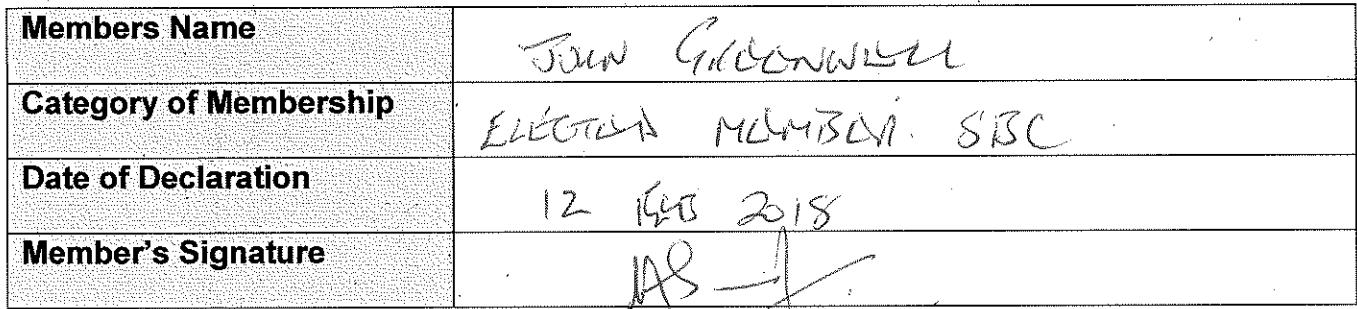 Members Name JOHN GREENWELL
Category of Membership ELECTED MEMBER SBC
Date of Declaration 12 FEB 2018
Member's Signature